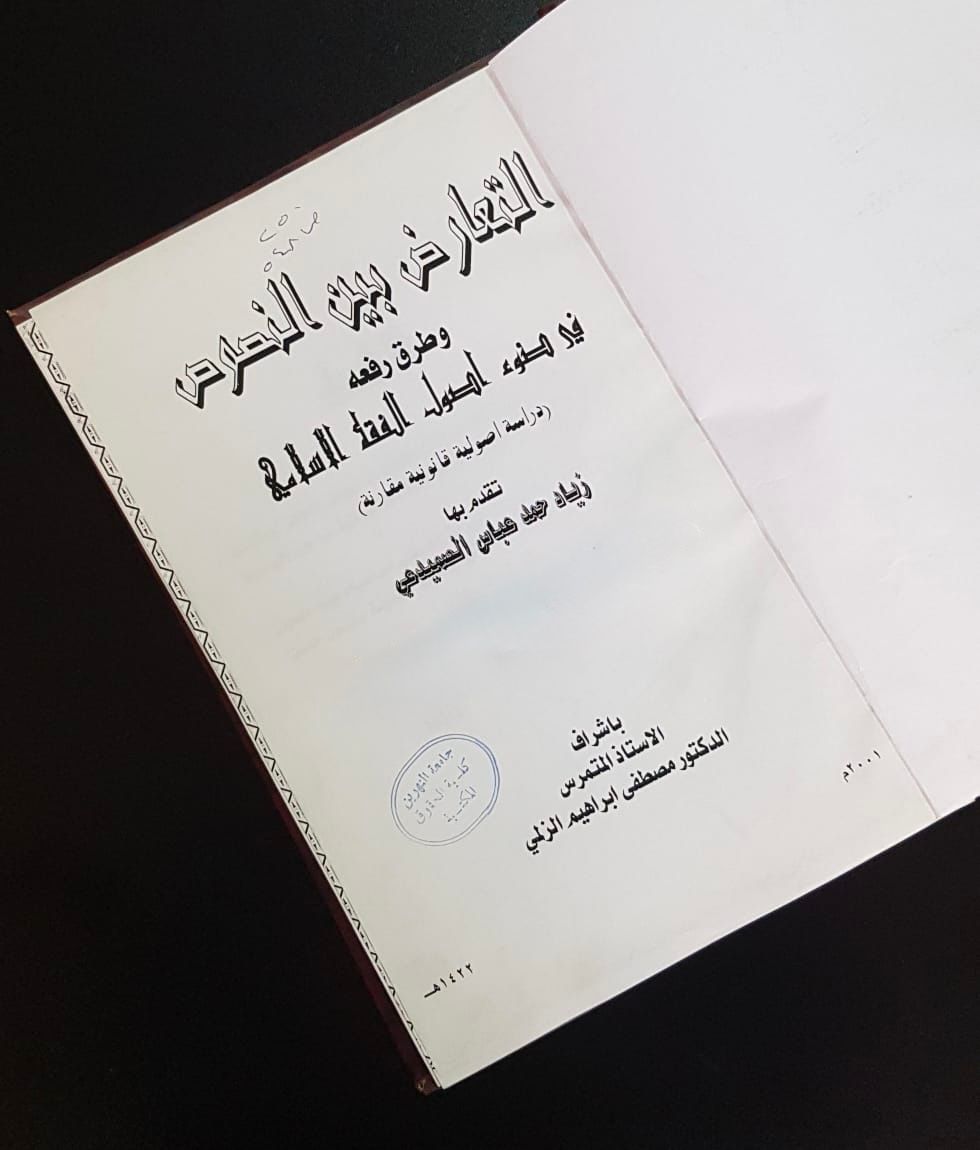 التعارض بين النصوص
وطرق رفعه
في ضوء اصول الفقه الاسلامي
(دراسة اصولية قانونية مقارنة)
تقدم بها
زياد حمد عباس الصميدعي
باشراف
الاستاذ المتمرس
الدكتور مصطفى ابراهيم الزلمي
جامعة النهرين
كلية الحقوق
المكتبة
١٤٢٢هـ
٢٠٠١م